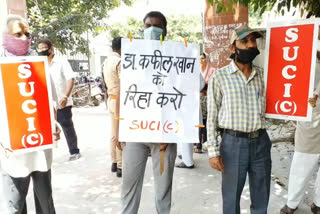 SUCI(C)
डा. कफील खान
को
रिहा करो
SUCI (C)
SUCI(C)